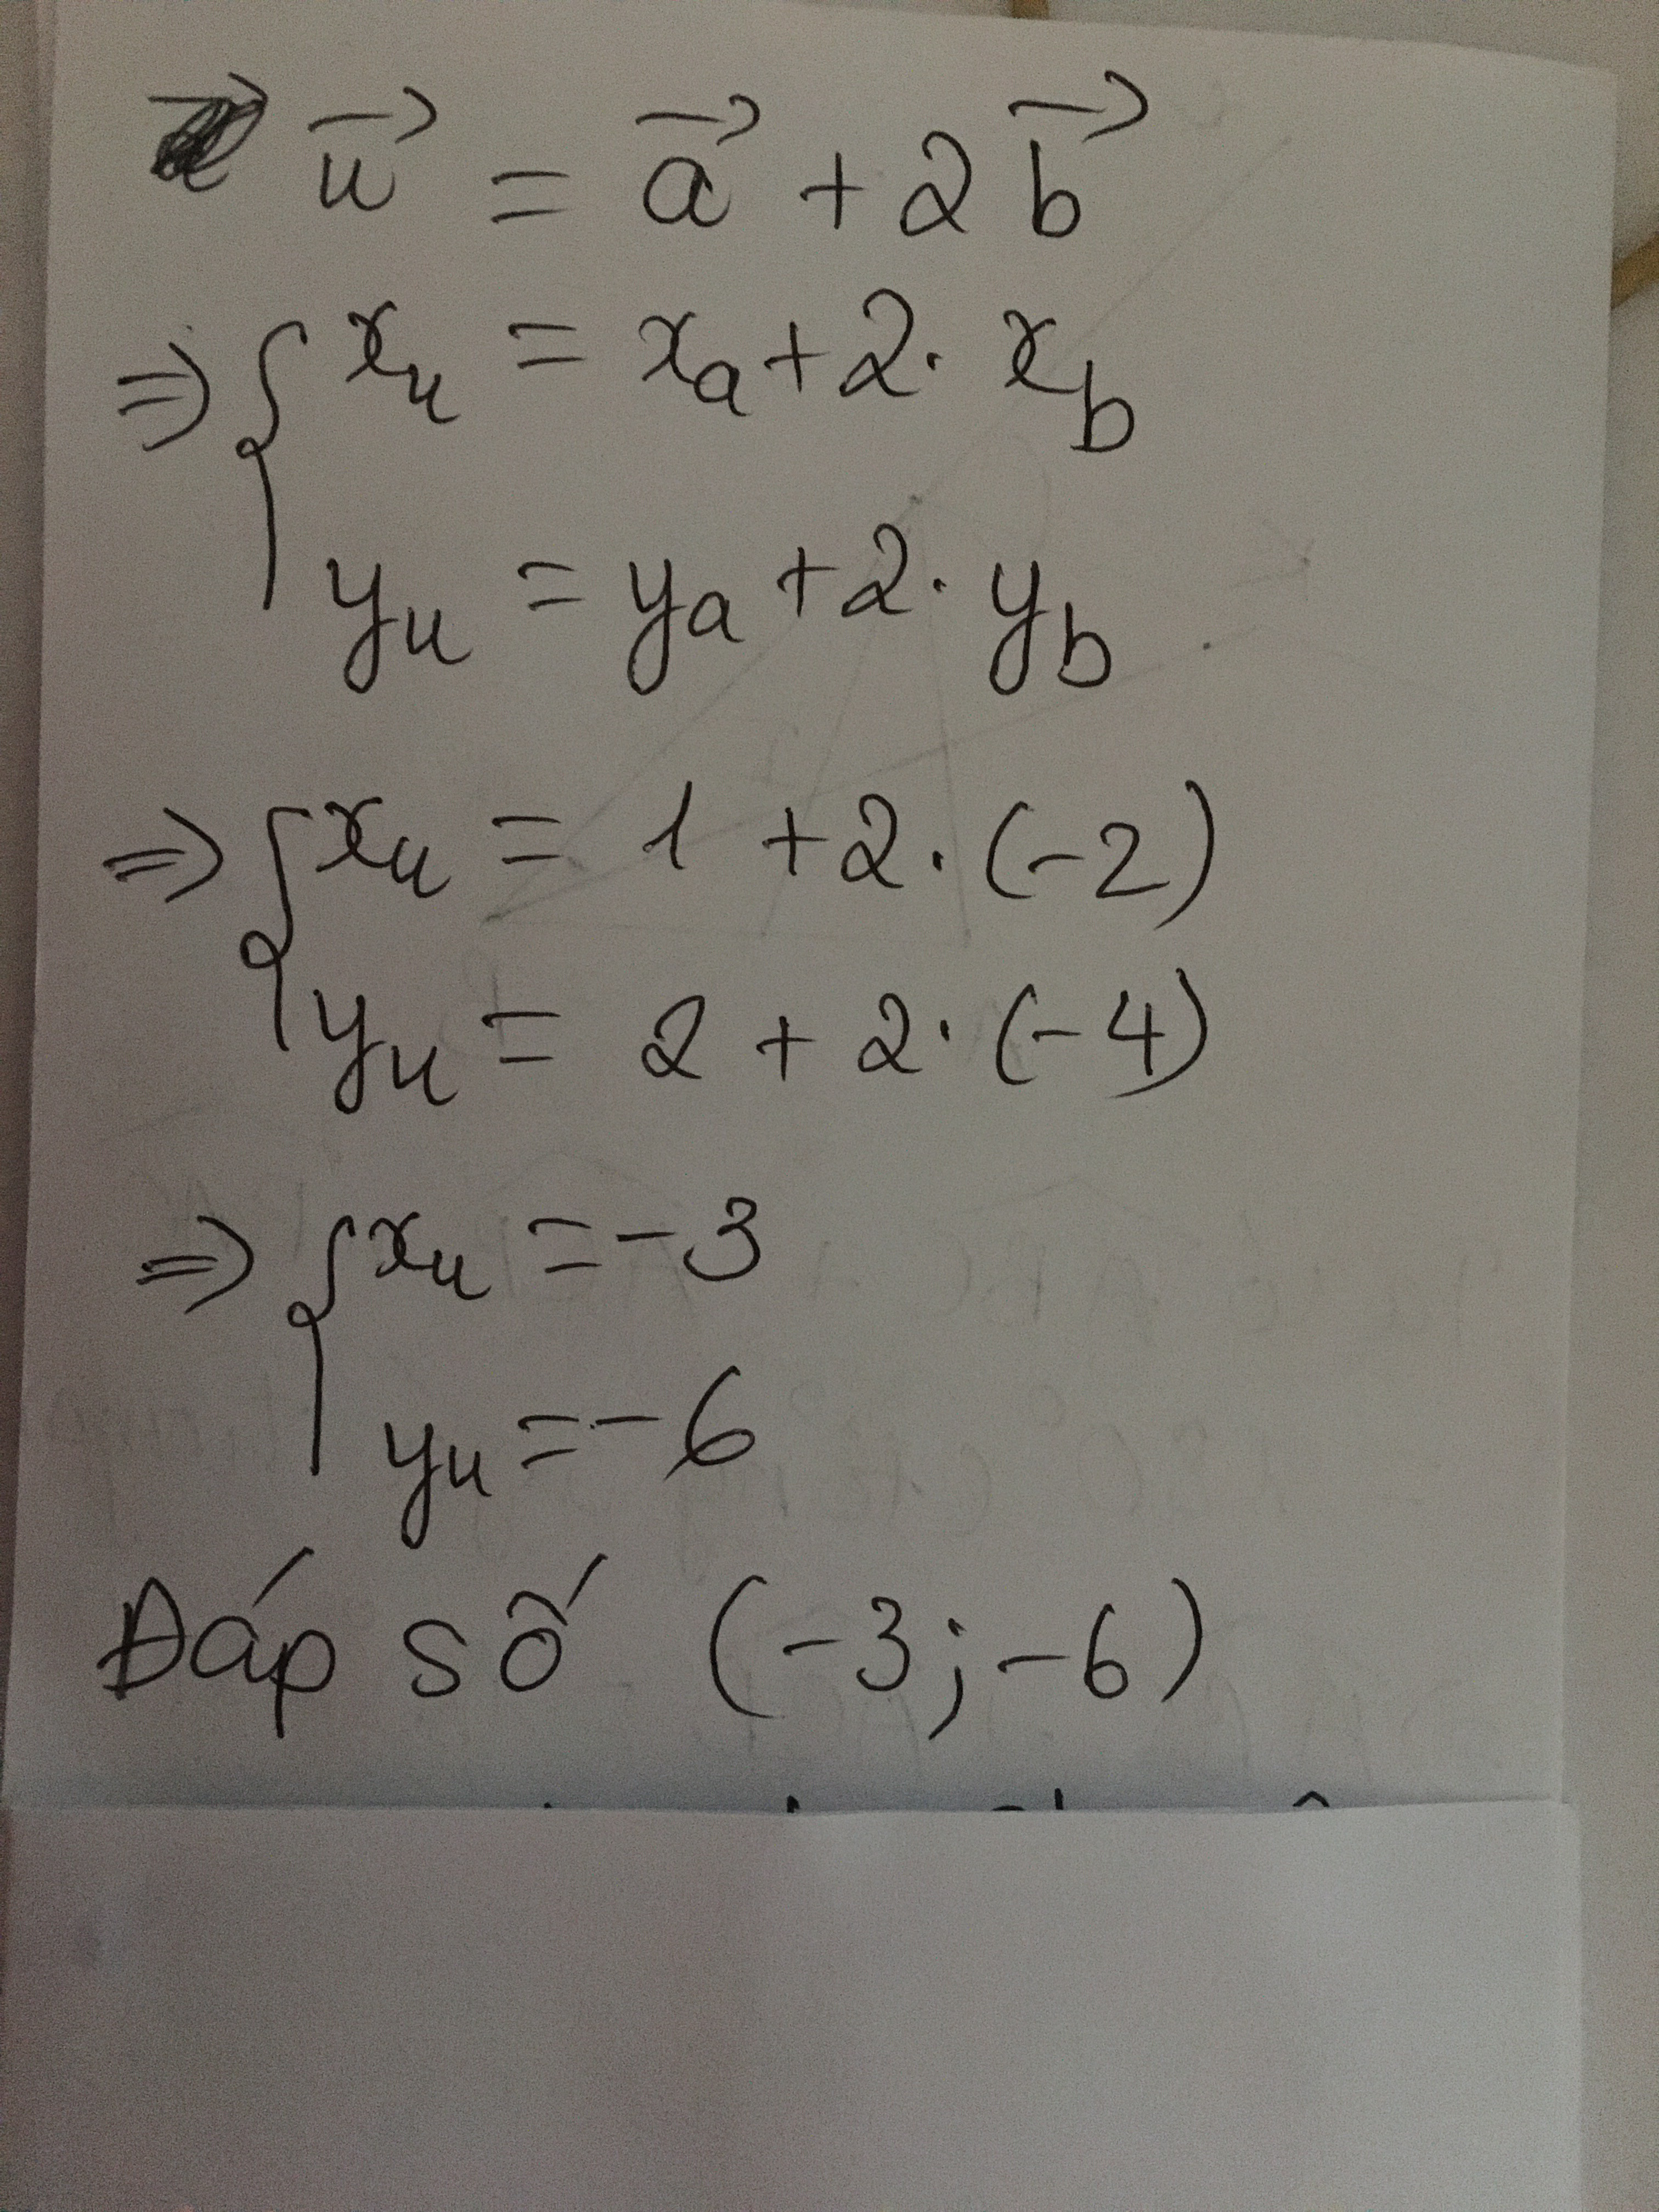 u⃗ = a⃗ + 2b⃗
⇒ { xᵤ = xₐ + 2. x_b
yᵤ = yₐ + 2. y_b
⇒ { xᵤ = 1 + 2. (-2)
yᵤ = 2 + 2. (-4)
⇒ { xᵤ = -3
yᵤ = -6
Đáp số (-3; -6)